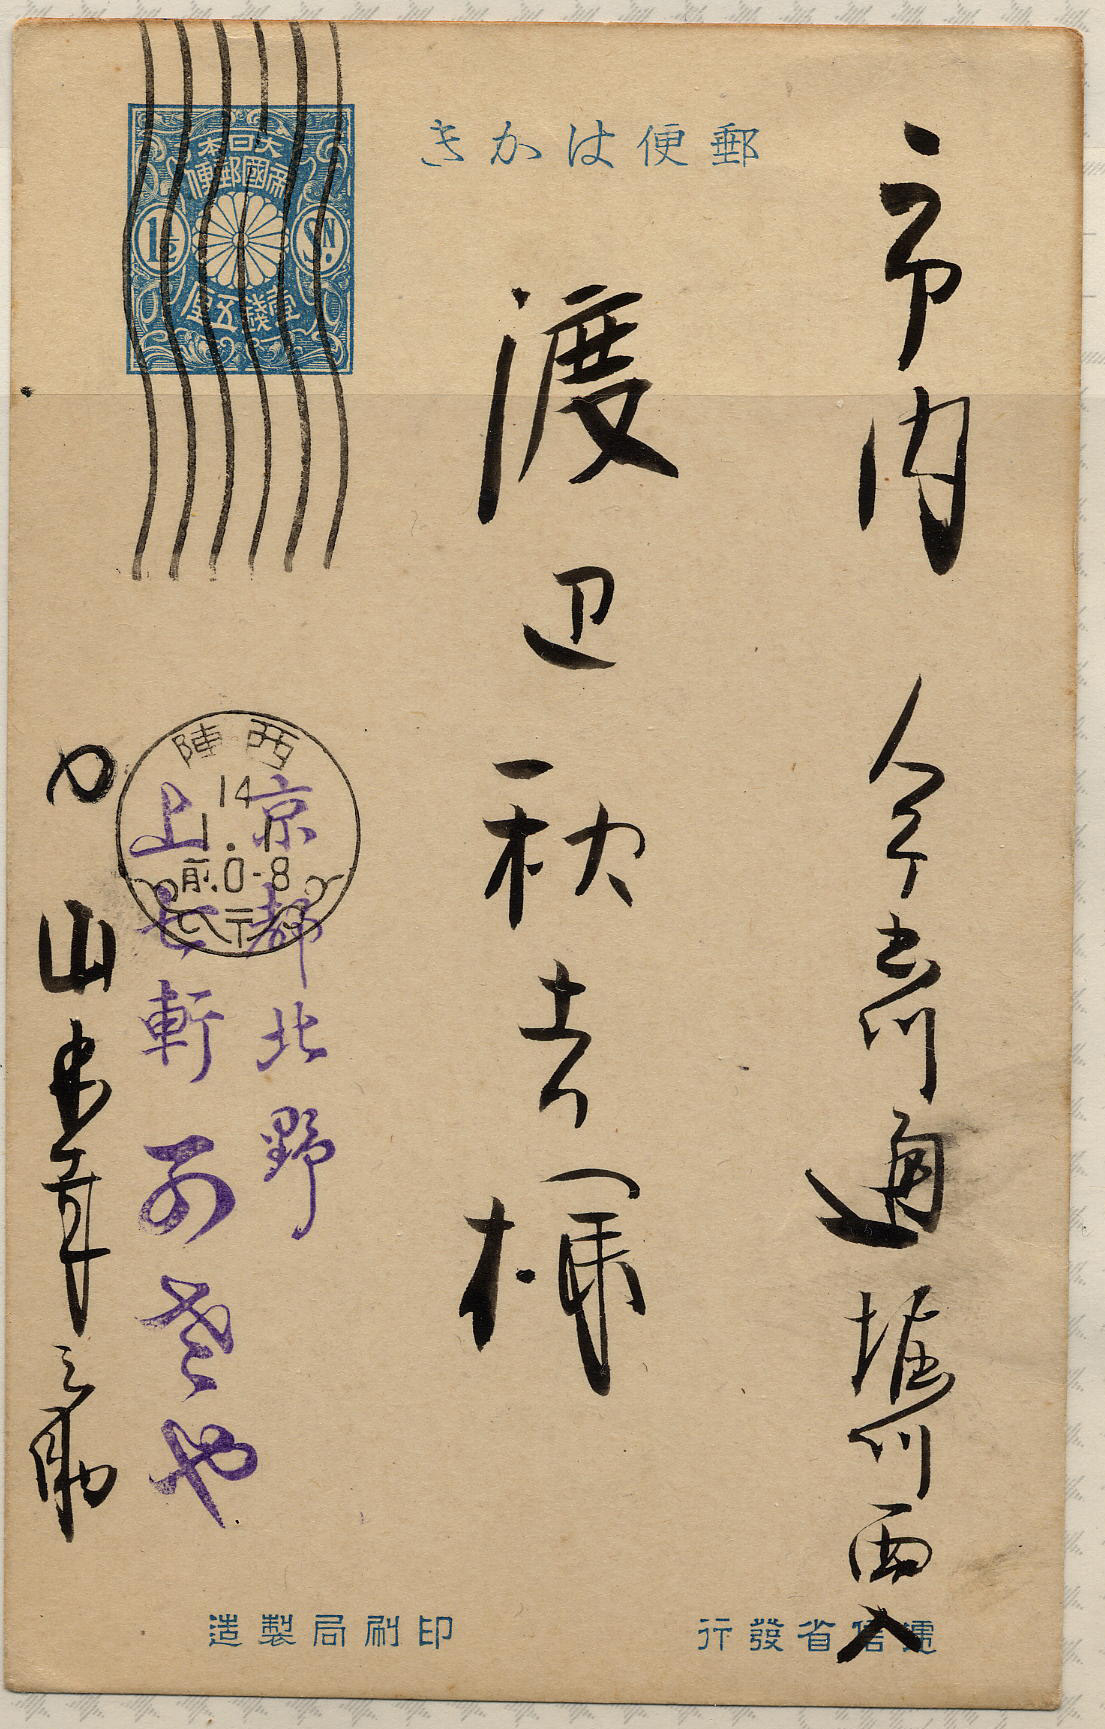 郵便はかき
大日本
帝國郵便
1½
SN.
壹錢五厘
市内 今出川通堀川西入
渡辺秋吉様
西陣
14
1.1
前0-8
京都北野
上七軒
や
山
之助
遞信省發行
印刷局製造